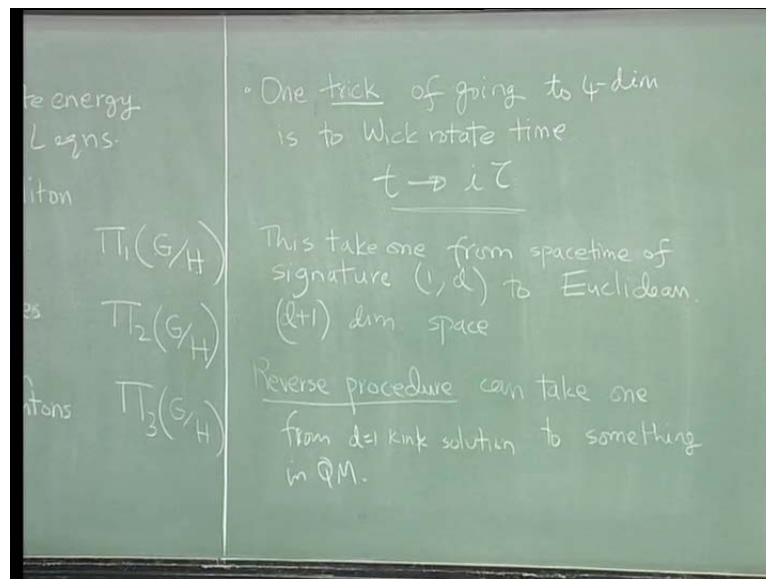 te energy
L eqns.
liton
Π₁(G/H)
es Π₂(G/H)
ntons Π₃(G/H)
• One trick of going to 4-dim
is to Wick rotate time
t → iτ
This take one from spacetime of
signature (1, d) to Euclidean.
(d+1) dim space
Reverse procedure can take one
from d=1 kink solution to something
in QM.